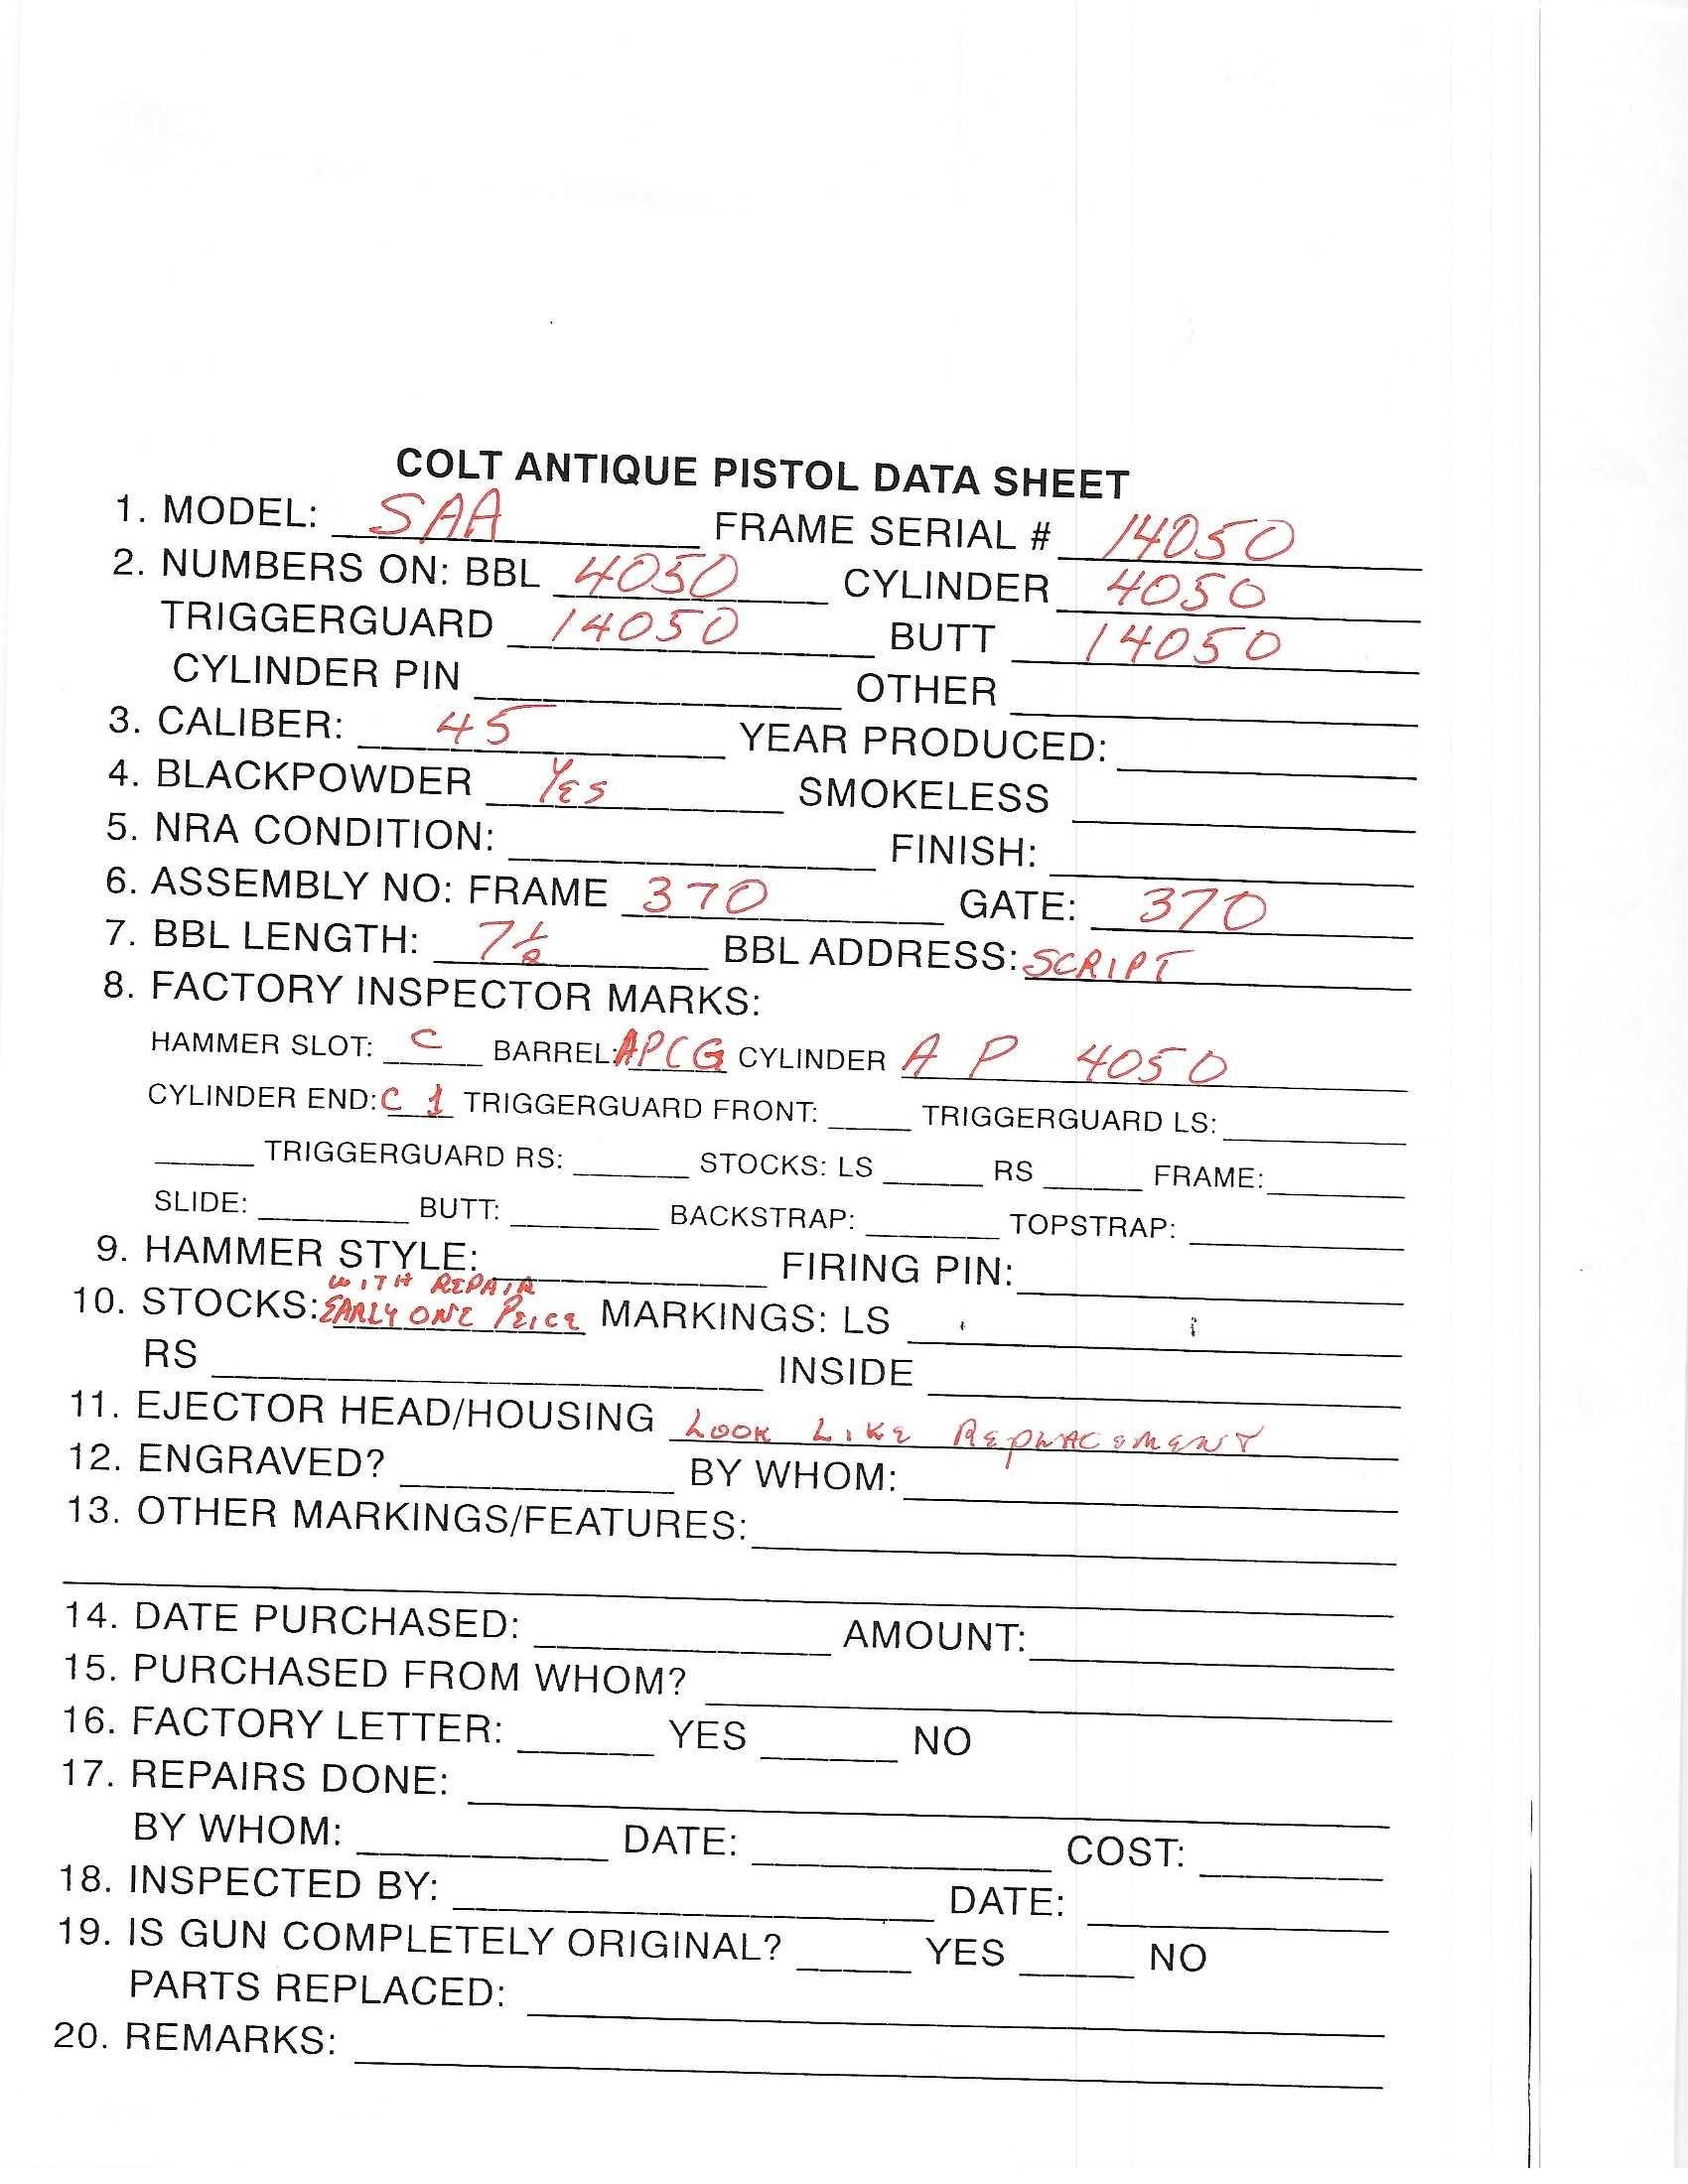 COLT ANTIQUE PISTOL DATA SHEET
1. MODEL: SAA FRAME SERIAL # 14050
2. NUMBERS ON: BBL 4050 CYLINDER 4050
TRIGGERGUARD 14050 BUTT 14050
CYLINDER PIN OTHER
3. CALIBER: 45 YEAR PRODUCED:
4. BLACKPOWDER YES SMOKELESS
5. NRA CONDITION: FINISH:
6. ASSEMBLY NO: FRAME 370 GATE: 370
7. BBL LENGTH: 7½ BBL ADDRESS: SCRIPT
8. FACTORY INSPECTOR MARKS:
HAMMER SLOT: C BARREL: APCG CYLINDER A P 4050
CYLINDER END: C 1 TRIGGERGUARD FRONT: TRIGGERGUARD LS:
TRIGGERGUARD RS: STOCKS: LS RS FRAME:
SLIDE: BUTT: BACKSTRAP: TOPSTRAP:
9. HAMMER STYLE: FIRING PIN:
WITH REPAIR
10. STOCKS: EARLY ONE PEICE MARKINGS: LS
RS INSIDE
11. EJECTOR HEAD/HOUSING LOOK LIKE REPLACEMENT
12. ENGRAVED? BY WHOM:
13. OTHER MARKINGS/FEATURES:
14. DATE PURCHASED: AMOUNT:
15. PURCHASED FROM WHOM?
16. FACTORY LETTER: YES NO
17. REPAIRS DONE:
BY WHOM: DATE: COST:
18. INSPECTED BY: DATE:
19. IS GUN COMPLETELY ORIGINAL? YES NO
PARTS REPLACED:
20. REMARKS: